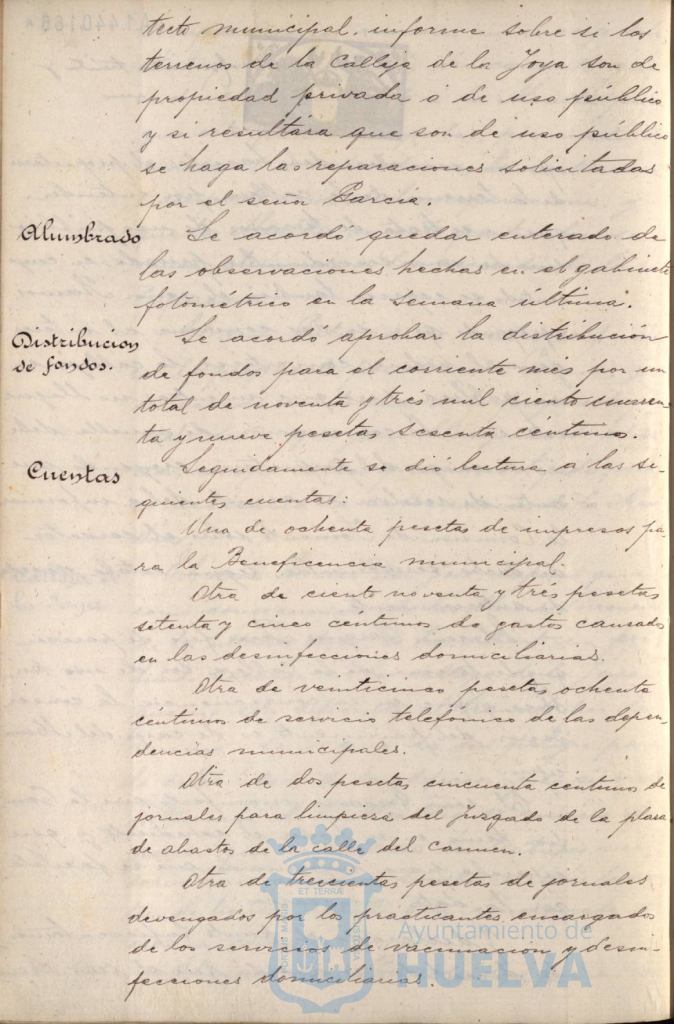 tecto municipal informe sobre si los
terrenos de la Calleja de la Joya son de
propiedad privada ó de uso público
y si resultára que son de uso público
se haga las reparaciones solicitadas
por el señor García.
Alumbrado
Se acordó quedar enterado de
las observaciones hechas en el gabinete
fotométrico en la semana última.
Distribución
de fondos.
Se acordó aprobar la distribución
de fondos para el corriente més por un
total de noventa y trés mil ciento cuaren-
ta y nueve pesetas sesenta céntimos.
Cuentas
Seguidamente se dió lectura á las si-
guientes cuentas:
Una de ochenta pesetas de impresos pa-
ra la Beneficencia municipal.
Otra de ciento noventa y trés pesetas
setenta y cinco céntimos de gastos causados
en las desinfecciones domiciliarias.
Otra de veinticinco pesetas ochenta
céntimos de servicio telefónico de las depen-
dencias municipales.
Otra de dos pesetas cincuenta céntimos de
jornales para limpieza del Juzgado de la plaza
de abastos de la calle del Carmen.
Otra de trescientas pesetas de jornales
devengados por los practicantes encargados
de los servicios de vacunación y desin-
fecciones domiciliarias.
ET TERRÆ
Ayuntamiento de
HUELVA